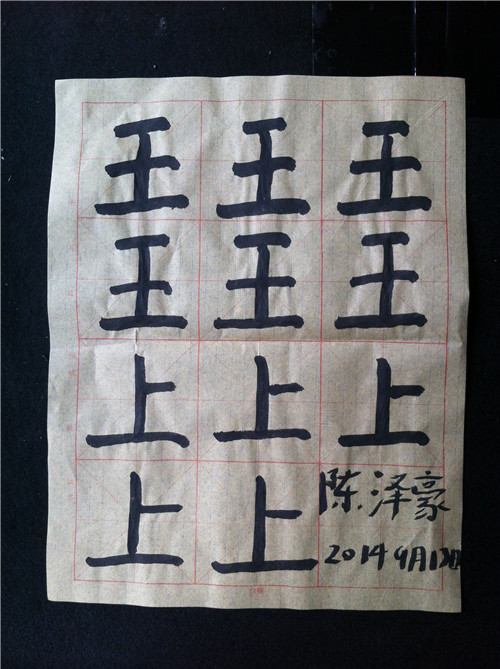 王王王
王王王
上上上
上上陈泽豪
2014 9月1日